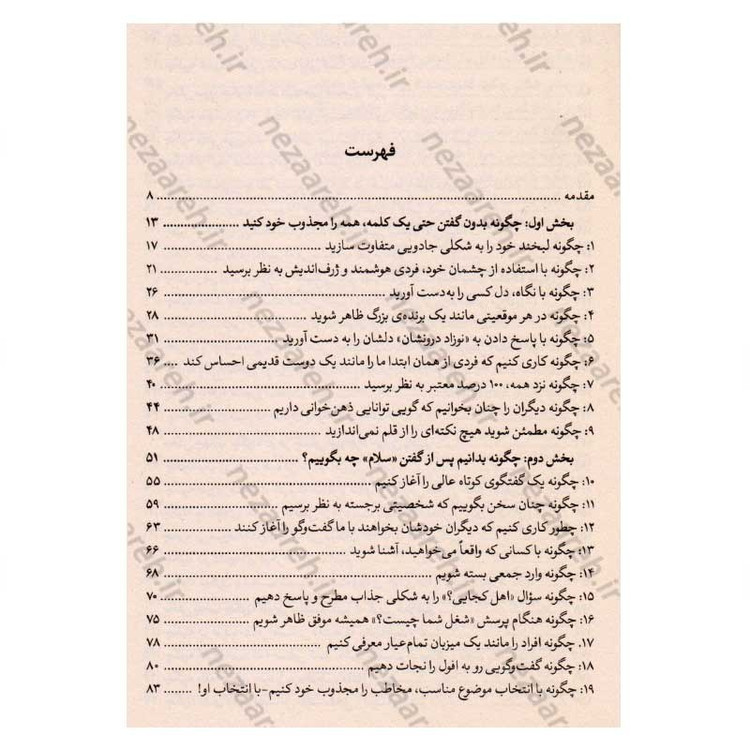 فهرست
مقدمه ........ ۸
بخش اول: چگونه بدون گفتن حتی یک کلمه، همه را مجذوب خود کنید ........ ۱۳
۱: چگونه لبخند خود را به شکلی جادویی متفاوت سازید ........ ۱۷
۲: چگونه با استفاده از چشمان خود، فردی هوشمند و ژرف‌اندیش به نظر برسید ........ ۲۱
۳: چگونه با نگاه، دل کسی را به‌دست آورید ........ ۲۶
۴: چگونه در هر موقعیتی مانند یک برنده‌ی بزرگ ظاهر شوید ........ ۲۸
۵: چگونه با پاسخ دادن به «نوزاد درونشان» دلشان را به دست آورید ........ ۳۱
۶: چگونه کاری کنیم که فردی از همان ابتدا ما را مانند یک دوست قدیمی احساس کند .... ۳۶
۷: چگونه نزد همه، ۱۰۰ درصد معتبر به نظر برسید ........ ۴۰
۸: چگونه دیگران را چنان بخوانیم که گویی توانایی ذهن‌خوانی داریم ........ ۴۴
۹: چگونه مطمئن شوید هیچ نکته‌ای را از قلم نمی‌اندازید ........ ۴۸
بخش دوم: چگونه بدانیم پس از گفتن «سلام» چه بگوییم؟ ........ ۵۱
۱۰: چگونه یک گفتگوی کوتاه عالی را آغاز کنیم ........ ۵۵
۱۱: چگونه چنان سخن بگوییم که شخصیتی برجسته به نظر برسیم ........ ۵۹
۱۲: چطور کاری کنیم که دیگران خودشان بخواهند با ما گفت‌وگو را آغاز کنند ........ ۶۳
۱۳: چگونه با کسانی که واقعاً می‌خواهید، آشنا شوید ........ ۶۶
۱۴: چگونه وارد جمعی بسته شویم ........ ۶۸
۱۵: چگونه سؤال «اهل کجایی؟» را به شکلی جذاب مطرح و پاسخ دهیم ........ ۷۰
۱۶: چگونه هنگام پرسش «شغل شما چیست؟» همیشه موفق ظاهر شویم ........ ۷۵
۱۷. چگونه افراد را مانند یک میزبان تمام‌عیار معرفی کنیم ........ ۷۸
۱۸: چگونه گفت‌وگویی رو به افول را نجات دهیم ........ ۸۰
۱۹: چگونه با انتخاب موضوع مناسب، مخاطب را مجذوب خود کنیم-با انتخاب او! ........ ۸۳
nezaareh.ir